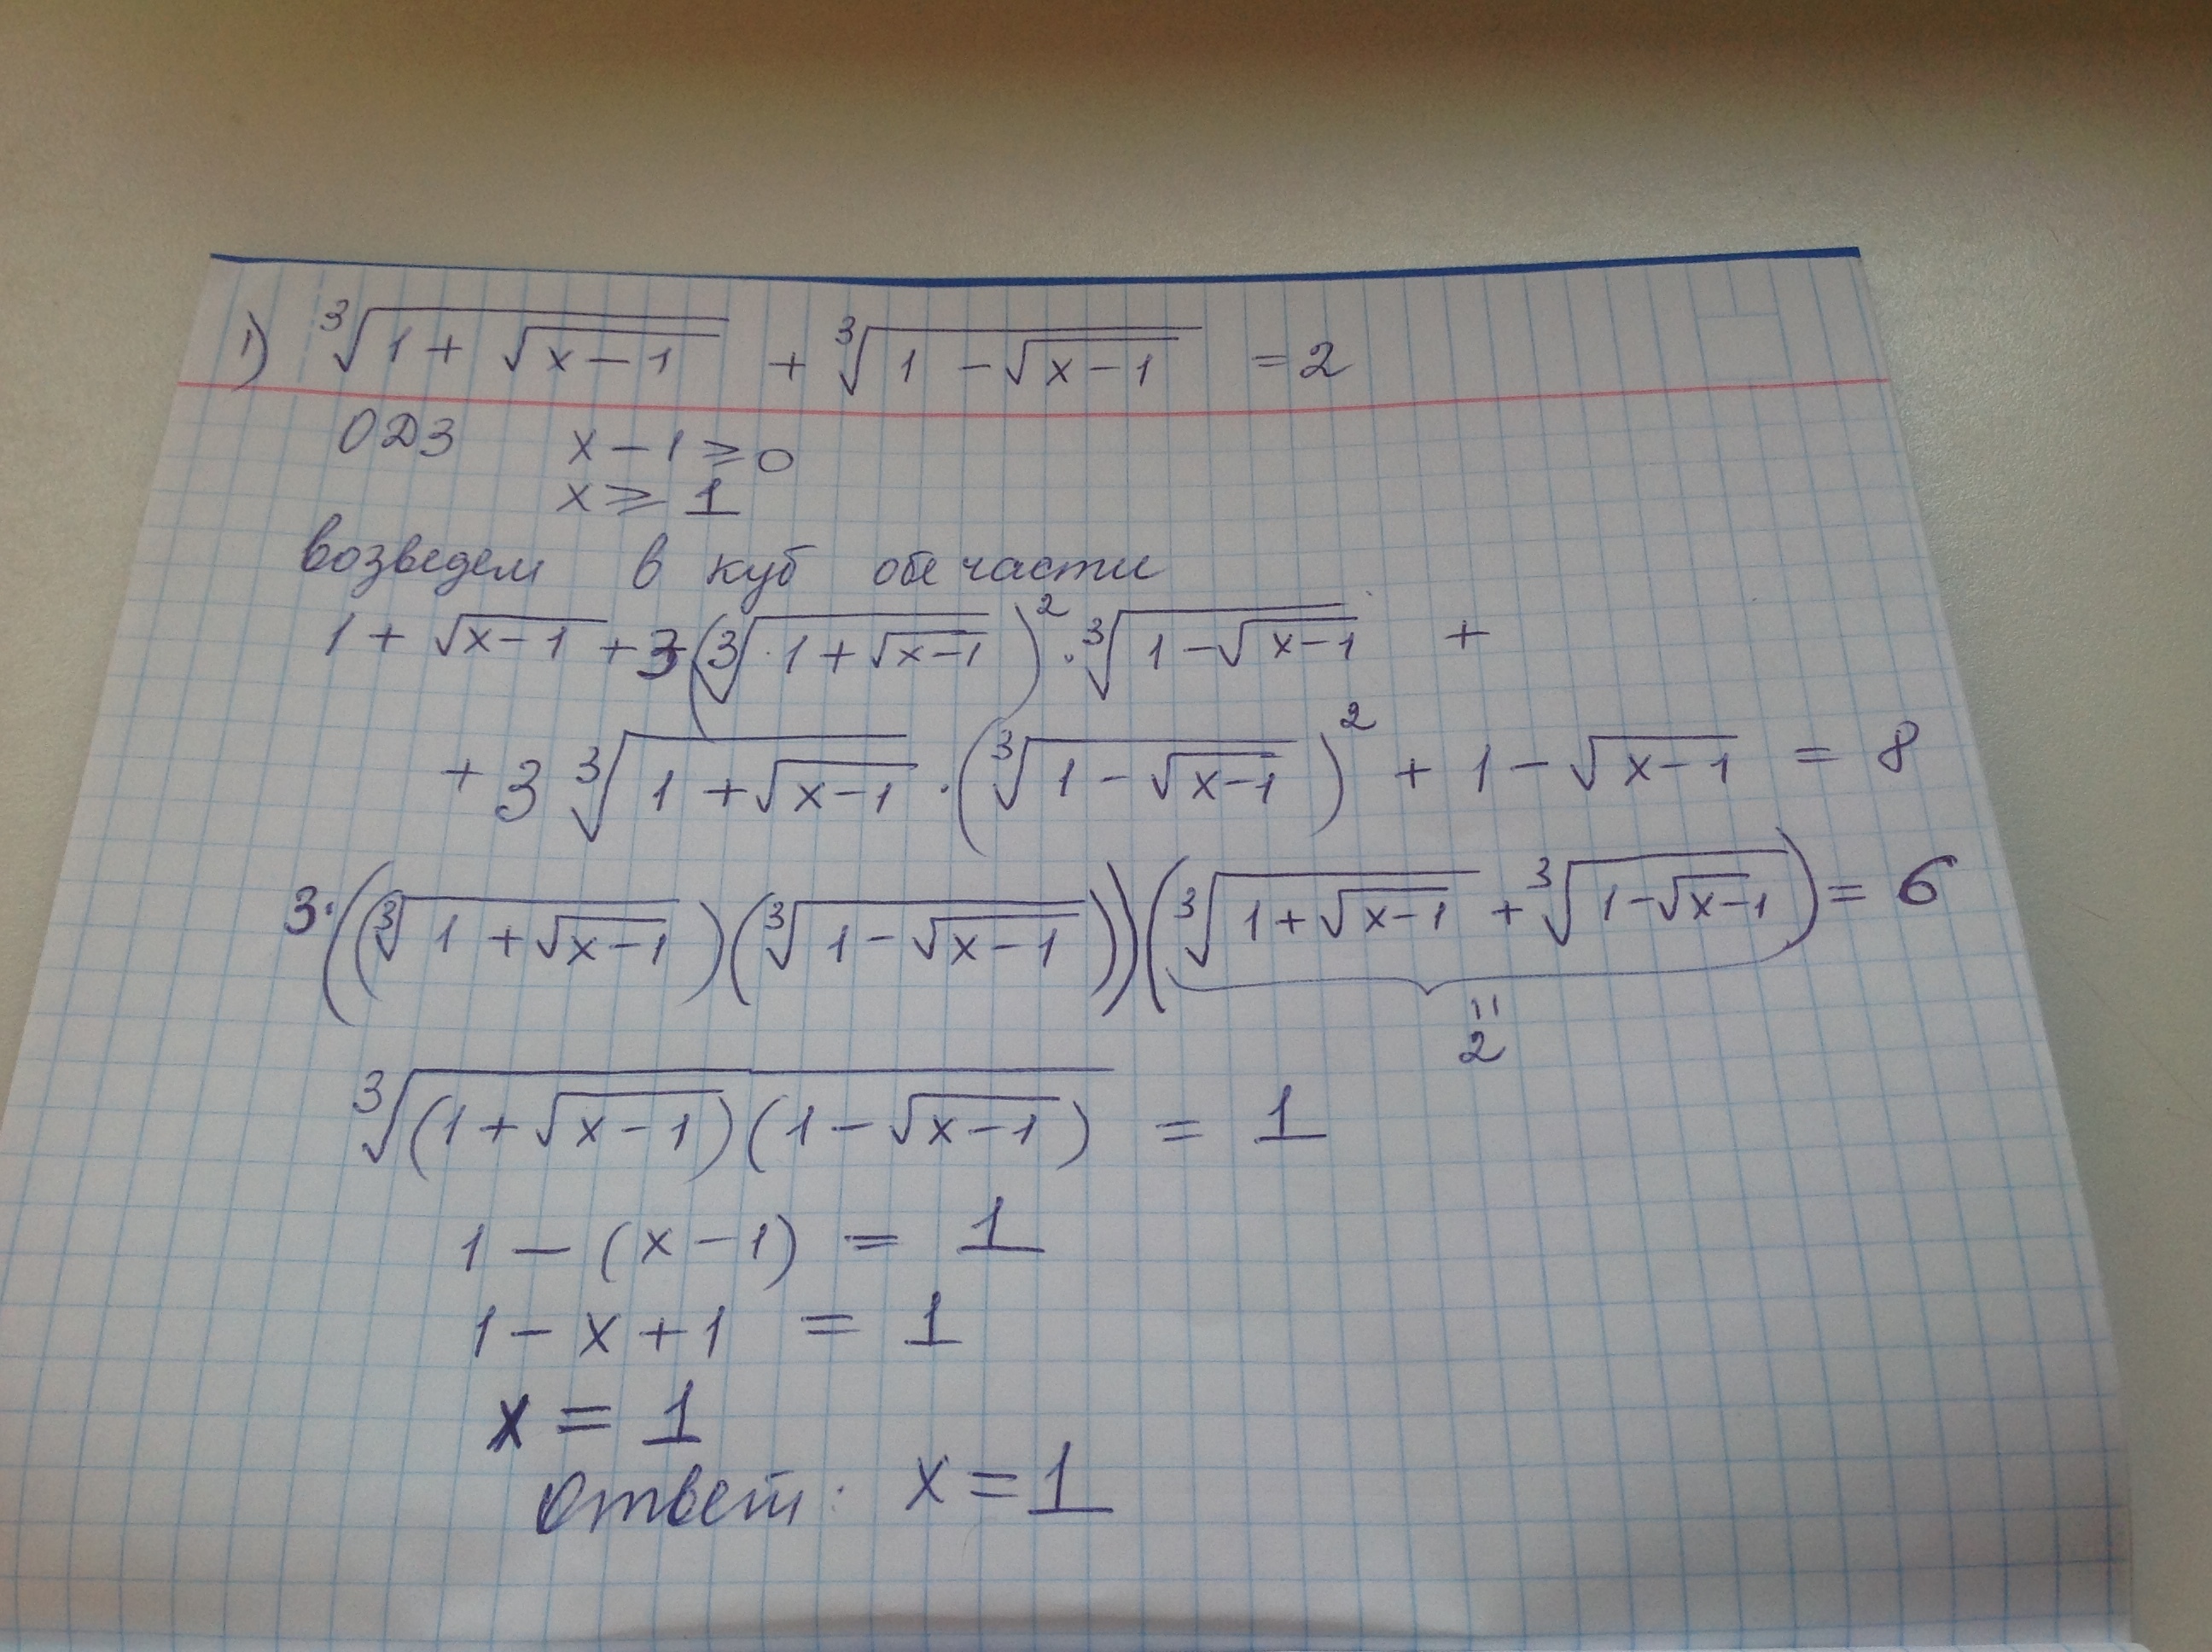 1) ∛(1 + √(x − 1)) + ∛(1 − √(x − 1)) = 2
ОДЗ x − 1 ⩾ 0
x ⩾ 1
возведем в куб обе части
1 + √(x − 1) + 3(∛(1 + √(x − 1)))² · ∛(1 − √(x − 1)) +
+ 3 ∛(1 + √(x − 1)) · (∛(1 − √(x − 1)))² + 1 − √(x − 1) = 8
3·((∛(1 + √(x − 1)))(∛(1 − √(x − 1))))(∛(1 + √(x − 1)) + ∛(1 − √(x − 1))) = 6
=
2
∛((1 + √(x − 1))(1 − √(x − 1))) = 1
1 − (x − 1) = 1
1 − x + 1 = 1
x = 1
Ответ: x = 1